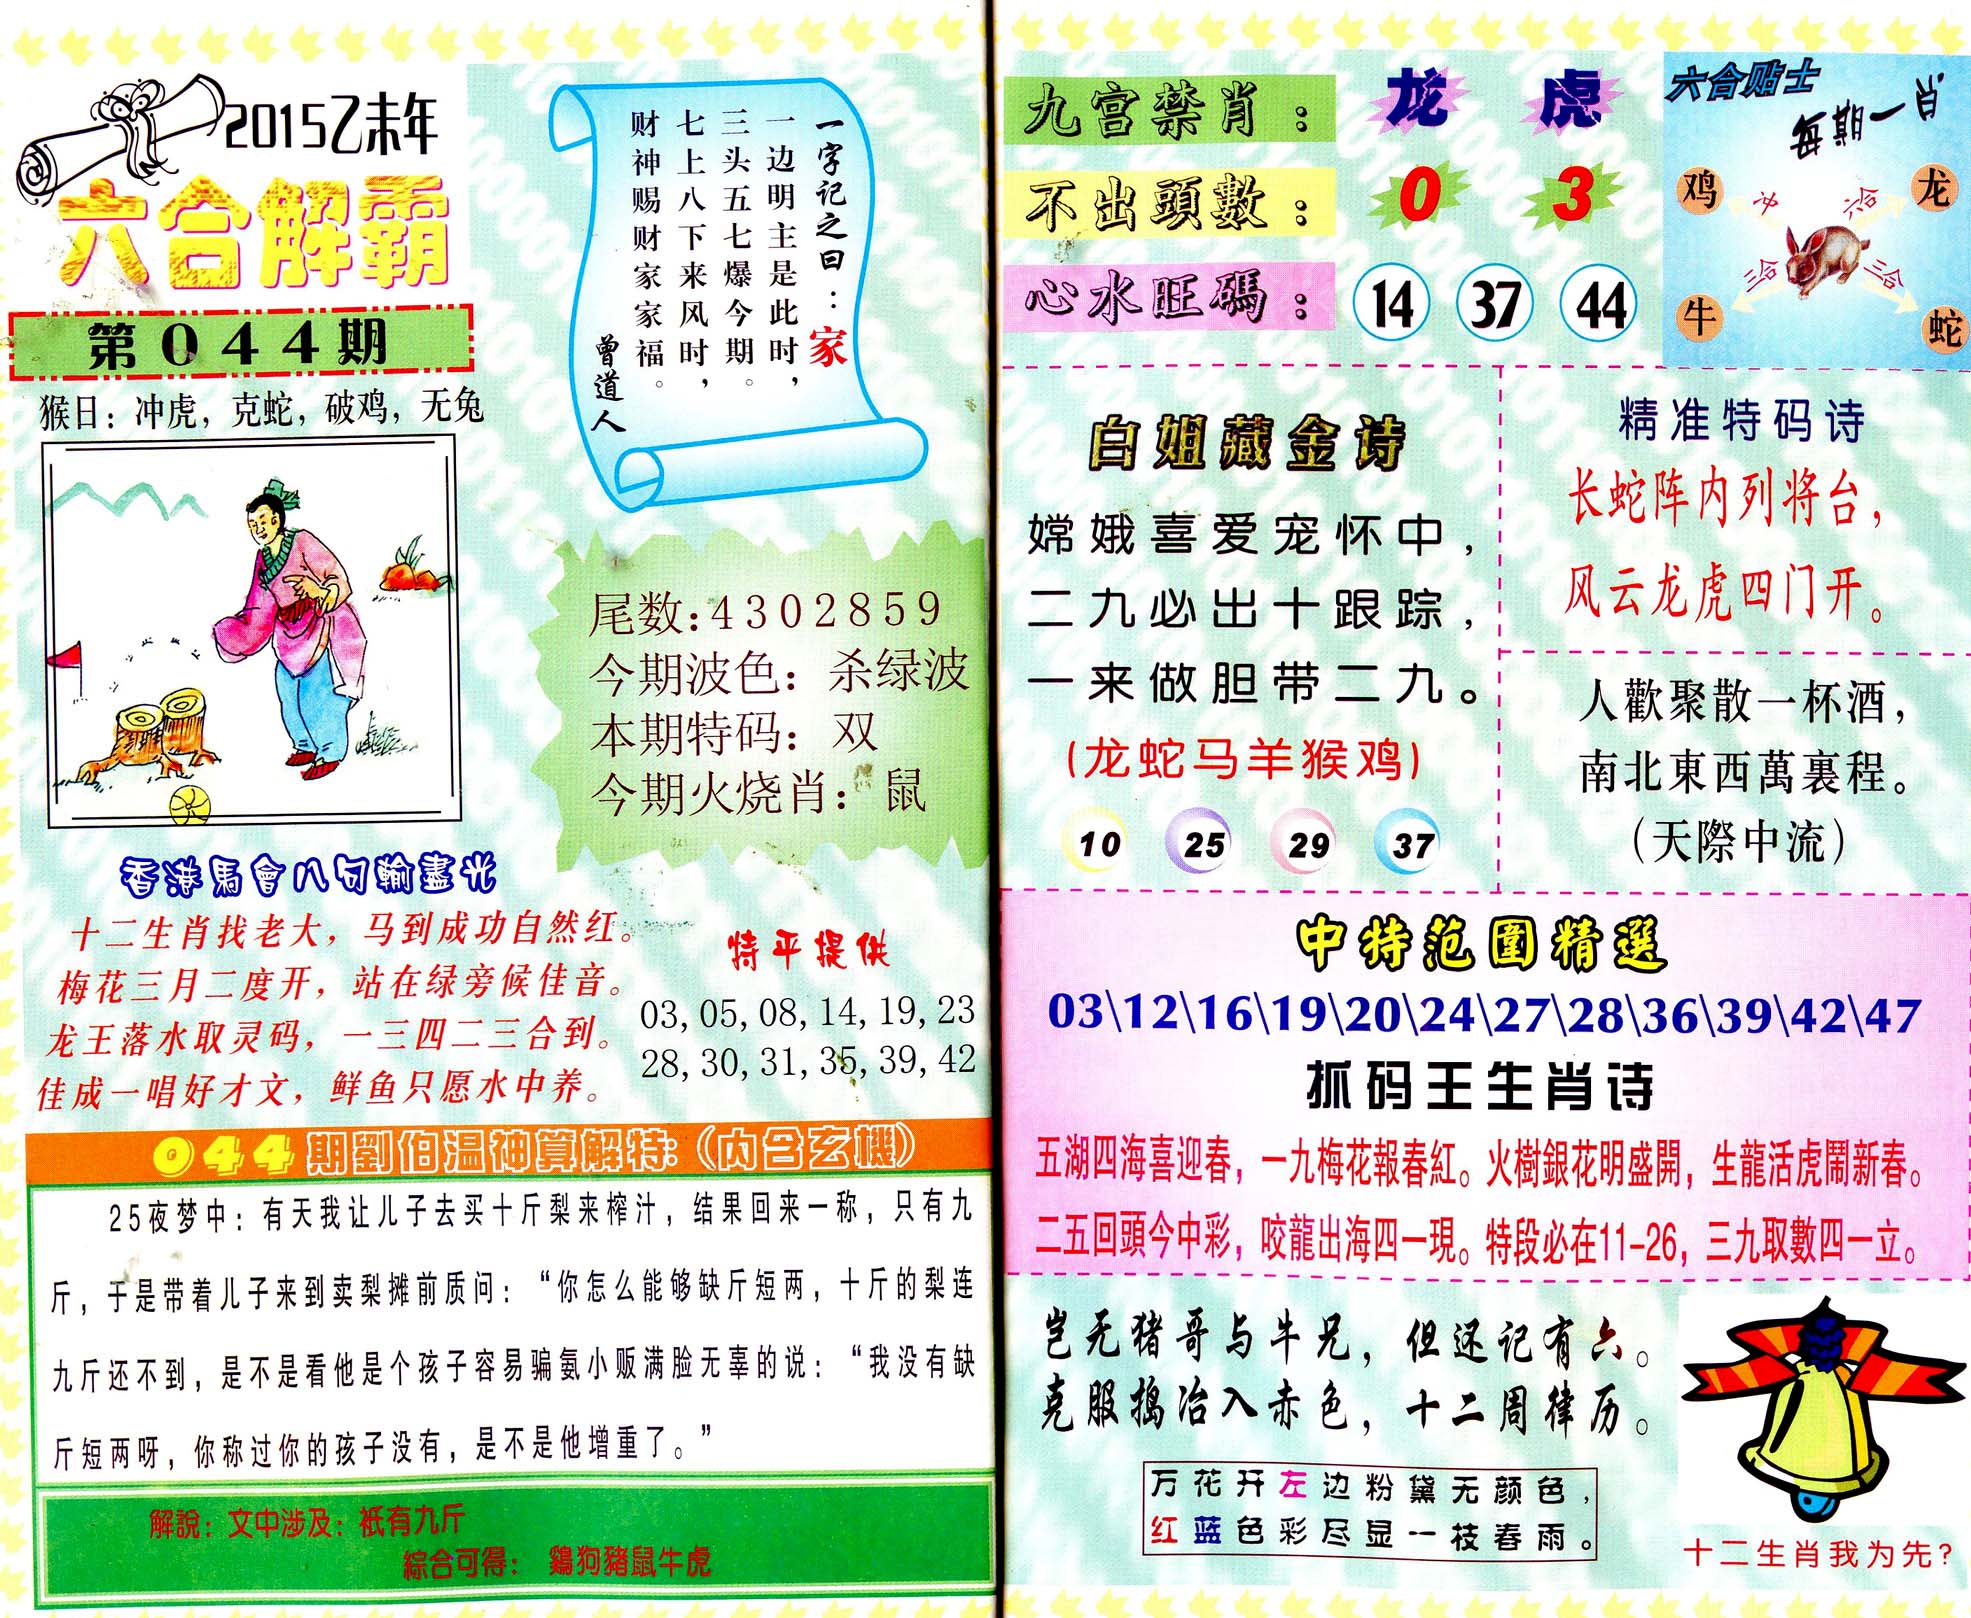 2015乙未年
六合解霸
第044期
猴日：冲虎，克蛇，破鸡，无兔
一字记之曰：家
一边明主是此时，
三头五七爆今期。
七上八下来风时，
财神赐财家家福。
曾道人
尾数:4302859
今期波色：杀绿波
本期特码：双
今期火烧肖：鼠
香港馬會八句輸盡光
十二生肖找老大，马到成功自然红。
梅花三月二度开，站在绿旁候佳音。
龙王落水取灵码，一三四二三合到。
佳成一唱好才文，鲜鱼只愿水中养。
特平提供
03,05,08,14,19,23
28,30,31,35,39,42
044期劉伯温神算解特:(内含玄機)
25夜梦中：有天我让儿子去买十斤梨来榨汁，结果回来一称，只有九
斤，于是带着儿子来到卖梨摊前质问：“你怎么能够缺斤短两，十斤的梨连
九斤还不到，是不是看他是个孩子容易骗氨小贩满脸无辜的说：“我没有缺
斤短两呀，你称过你的孩子没有，是不是他增重了。”
解說：文中涉及：衹有九斤
綜合可得： 鷄狗豬鼠牛虎
九宫禁肖：龙 虎
不出頭數：0 3
心水旺碼：14 37 44
六合贴士
每期一肖
鸡 冲 六合 龙
牛 三合 三合 蛇
白姐藏金诗
嫦娥喜爱宠怀中，
二九必出十跟踪，
一来做胆带二九。
(龙蛇马羊猴鸡)
10 25 29 37
精准特码诗
长蛇阵内列将台，
风云龙虎四门开。
人歡聚散一杯酒，
南北東西萬裏程。
（天際中流）
中特范圍精選
03\12\16\19\20\24\27\28\36\39\42\47
抓码王生肖诗
五湖四海喜迎春，一九梅花報春紅。火樹銀花明盛開，生龍活虎鬧新春。
二五回頭今中彩，咬龍出海四一現。特段必在11-26，三九取數四一立。
岂无猪哥与牛兄，但还记有六。
克服捣冶入赤色，十二周律历。
万花开左边粉黛无颜色，
红蓝色彩尽显一枝春雨。
十二生肖我为先？